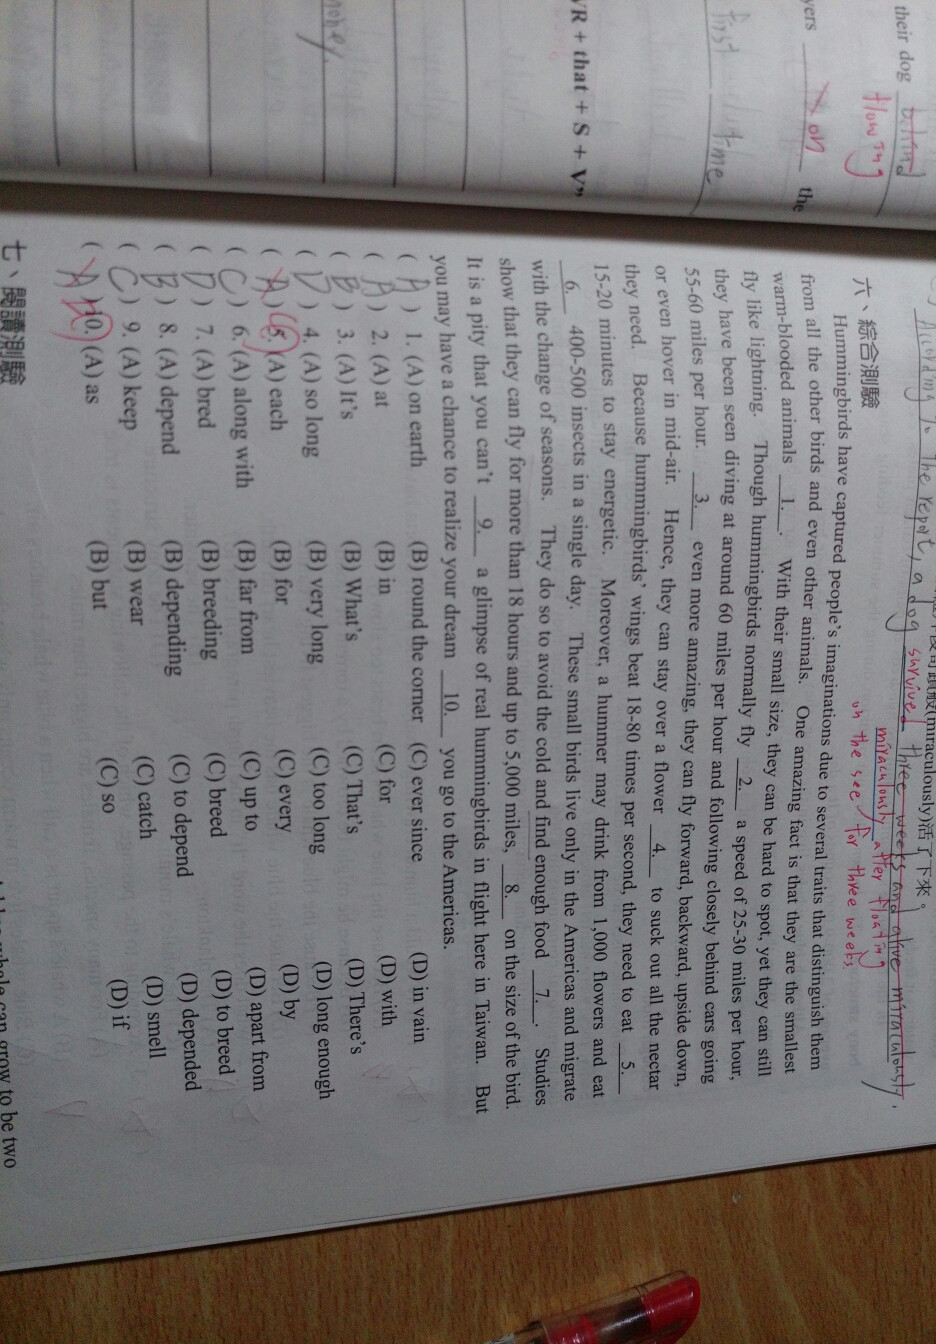 their dog behind
flowing
yers on the
first time
VR + that + S + V”
money.
(miraculously)活了下來。
According to the report, a dog survived three weeks and alive miraculously.
miraculously after floating
on the see for three weeks
六、綜合測驗
Hummingbirds have captured people’s imaginations due to several traits that distinguish them
from all the other birds and even other animals. One amazing fact is that they are the smallest
warm-blooded animals 1. . With their small size, they can be hard to spot, yet they can still
fly like lightning. Though hummingbirds normally fly 2. a speed of 25-30 miles per hour,
they have been seen diving at around 60 miles per hour and following closely behind cars going
55-60 miles per hour. 3. even more amazing, they can fly forward, backward, upside down,
or even hover in mid-air. Hence, they can stay over a flower 4. to suck out all the nectar
they need. Because hummingbirds’ wings beat 18-80 times per second, they need to eat 5.
15-20 minutes to stay energetic. Moreover, a hummer may drink from 1,000 flowers and eat
6. 400-500 insects in a single day. These small birds live only in the Americas and migrate
with the change of seasons. They do so to avoid the cold and find enough food 7. . Studies
show that they can fly for more than 18 hours and up to 5,000 miles, 8. on the size of the bird.
It is a pity that you can’t 9. a glimpse of real hummingbirds in flight here in Taiwan. But
you may have a chance to realize your dream 10. you go to the Americas.
( A ) 1. (A) on earth (B) round the corner (C) ever since (D) in vain
( A ) 2. (A) at (B) in (C) for (D) with
( B ) 3. (A) It’s (B) What’s (C) That’s (D) There’s
( D ) 4. (A) so long (B) very long (C) too long (D) long enough
( A C ) 5. (A) each (B) for (C) every (D) by
( C ) 6. (A) along with (B) far from (C) up to (D) apart from
( D ) 7. (A) bred (B) breeding (C) breed (D) to breed
( B ) 8. (A) depend (B) depending (C) to depend (D) depended
( C ) 9. (A) keep (B) wear (C) catch (D) smell
( A D ) 10. (A) as (B) but (C) so (D) if
七、閱讀測驗
whale can grow to be two